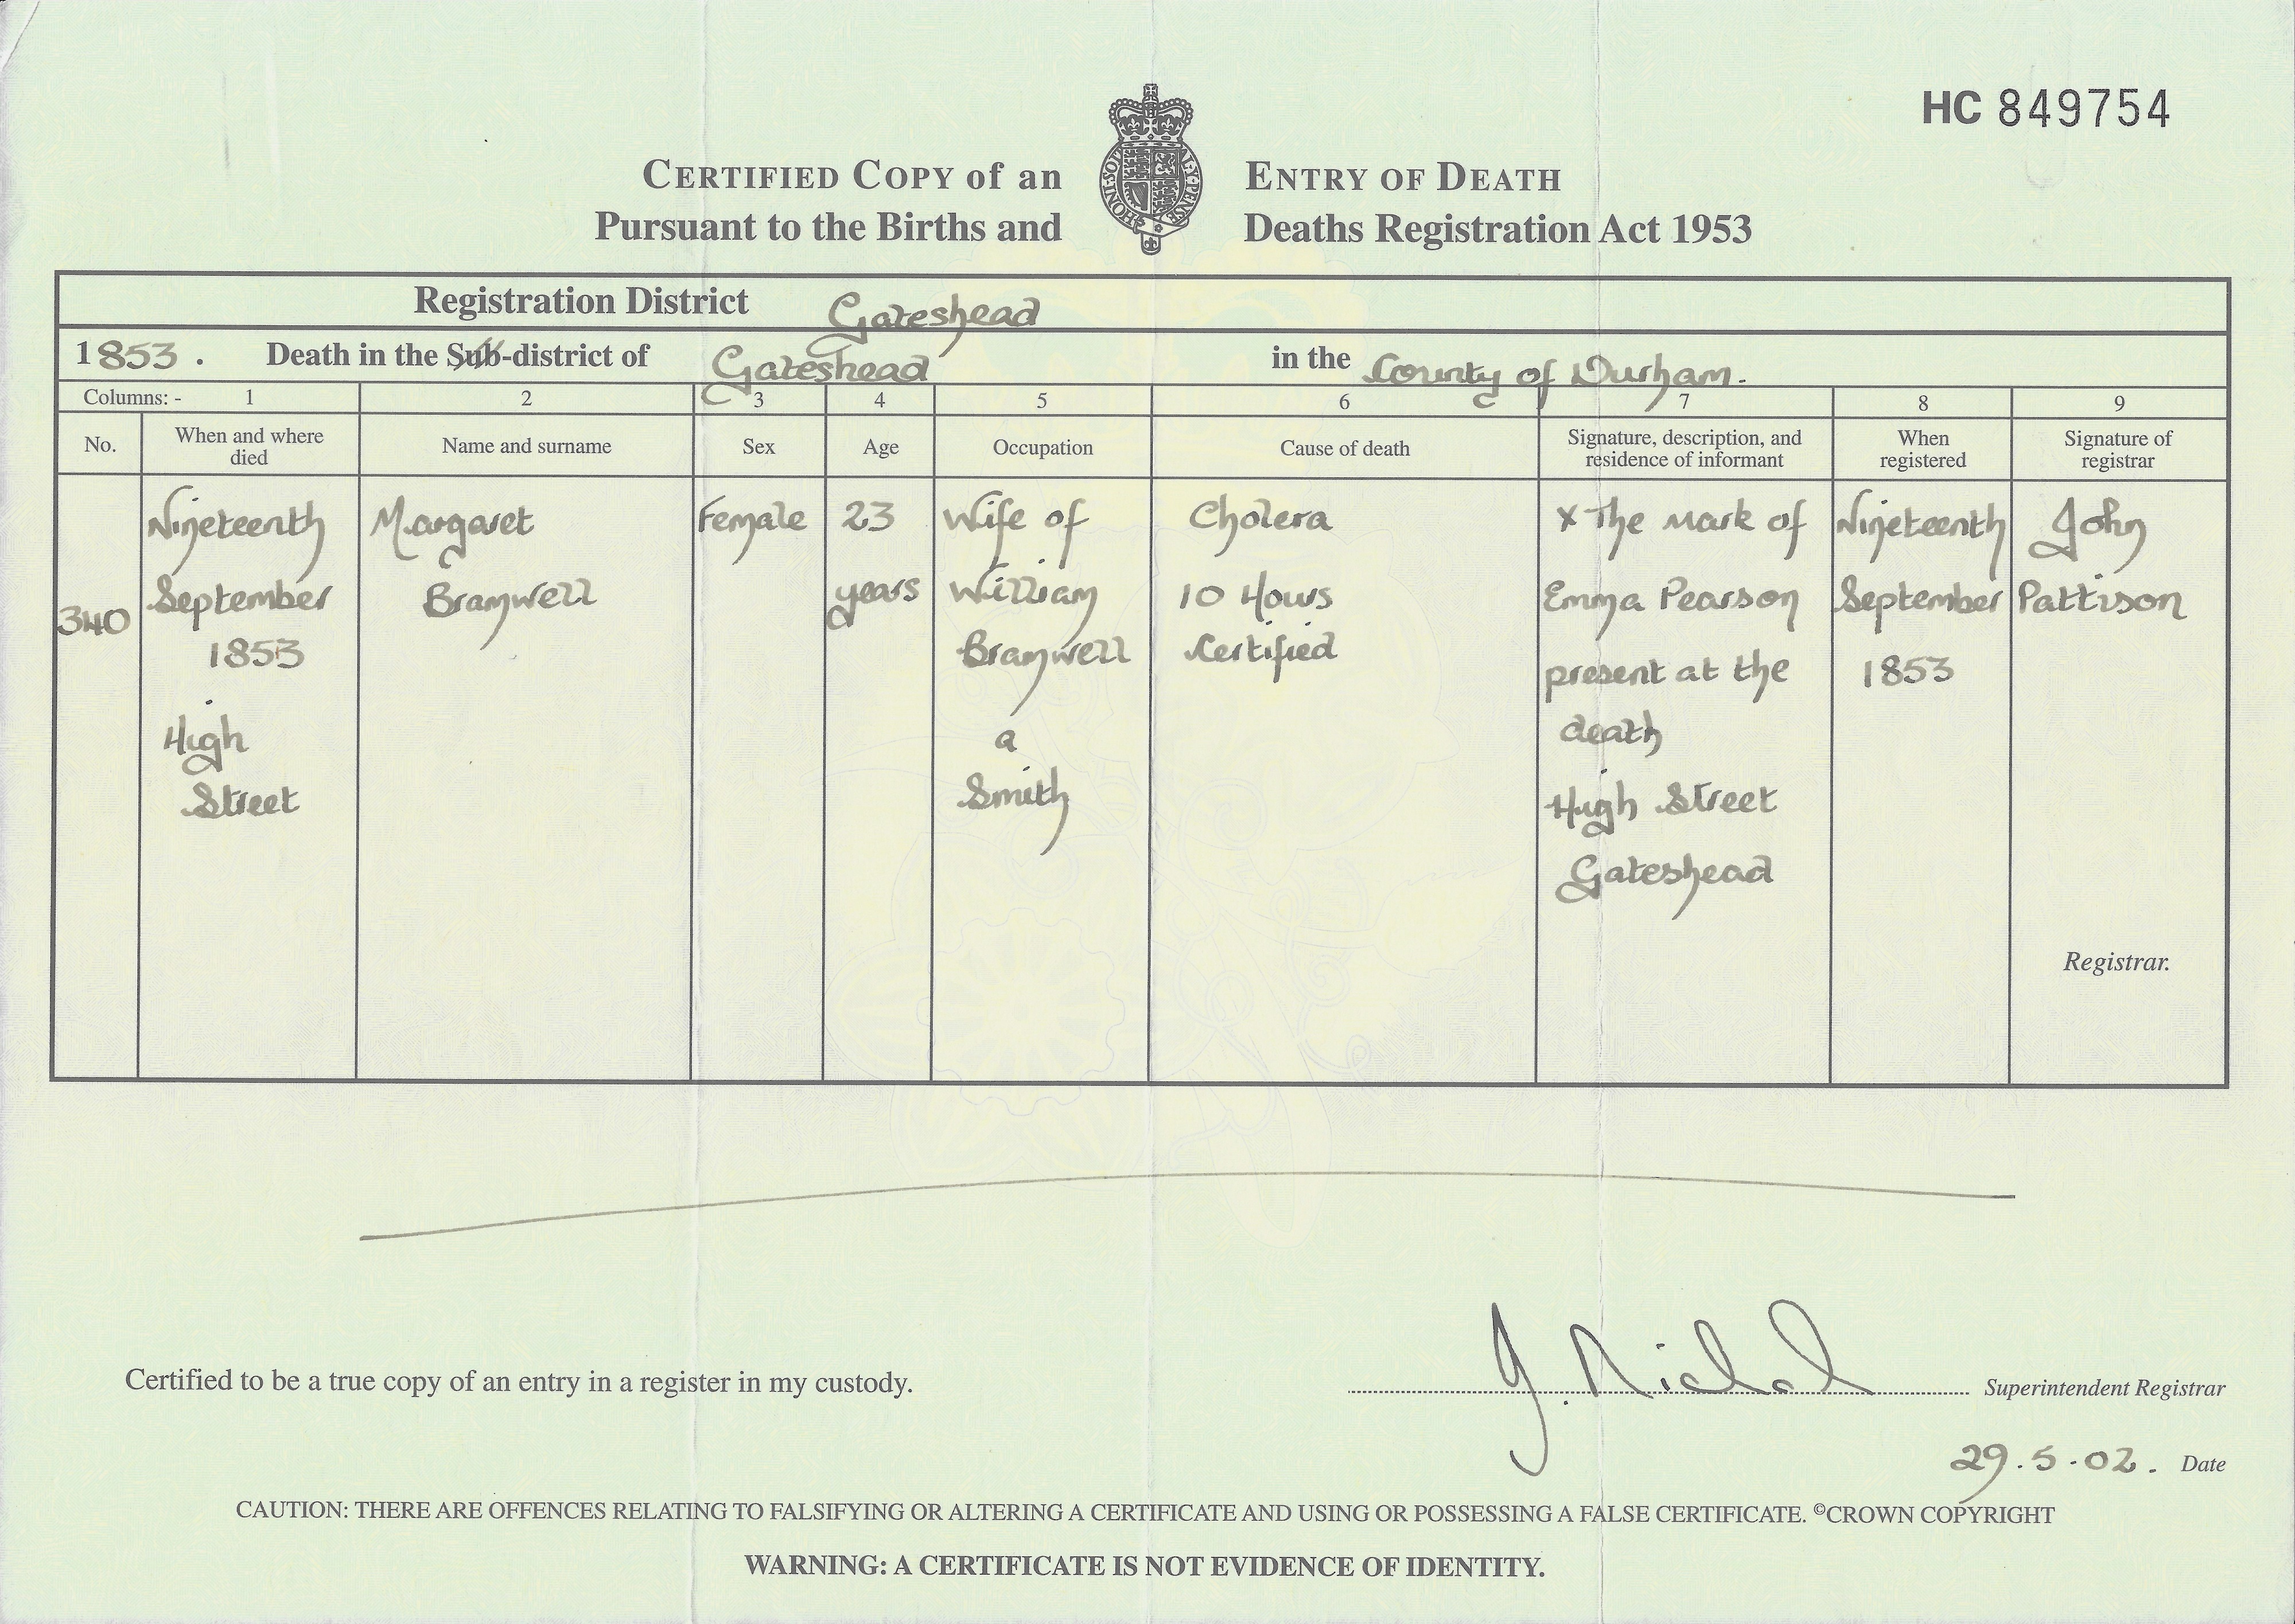 HC 849754
CERTIFIED COPY of an ENTRY OF DEATH
Pursuant to the Births and Deaths Registration Act 1953
HONI·SOIT AL·Y·PENSE
Registration District Gateshead
1853. Death in the Sub-district of Gateshead in the County of Durham.
Columns: - 1 2 3 4 5 6 7 8 9
No. When and where died Name and surname Sex Age Occupation Cause of death Signature, description, and residence of informant When registered Signature of registrar
340
Nineteenth
September
1853
High
Street
Margaret
Bramwell
Female
23
years
Wife of
William
Bramwell
a
Smith
Cholera
10 Hours
Certified
X The Mark of
Emma Pearson
present at the
death
High Street
Gateshead
Nineteenth
September
1853
John
Pattison
Registrar.
Certified to be a true copy of an entry in a register in my custody.
J. Nichol Superintendent Registrar
29.5.02. Date
CAUTION: THERE ARE OFFENCES RELATING TO FALSIFYING OR ALTERING A CERTIFICATE AND USING OR POSSESSING A FALSE CERTIFICATE. ©CROWN COPYRIGHT
WARNING: A CERTIFICATE IS NOT EVIDENCE OF IDENTITY.